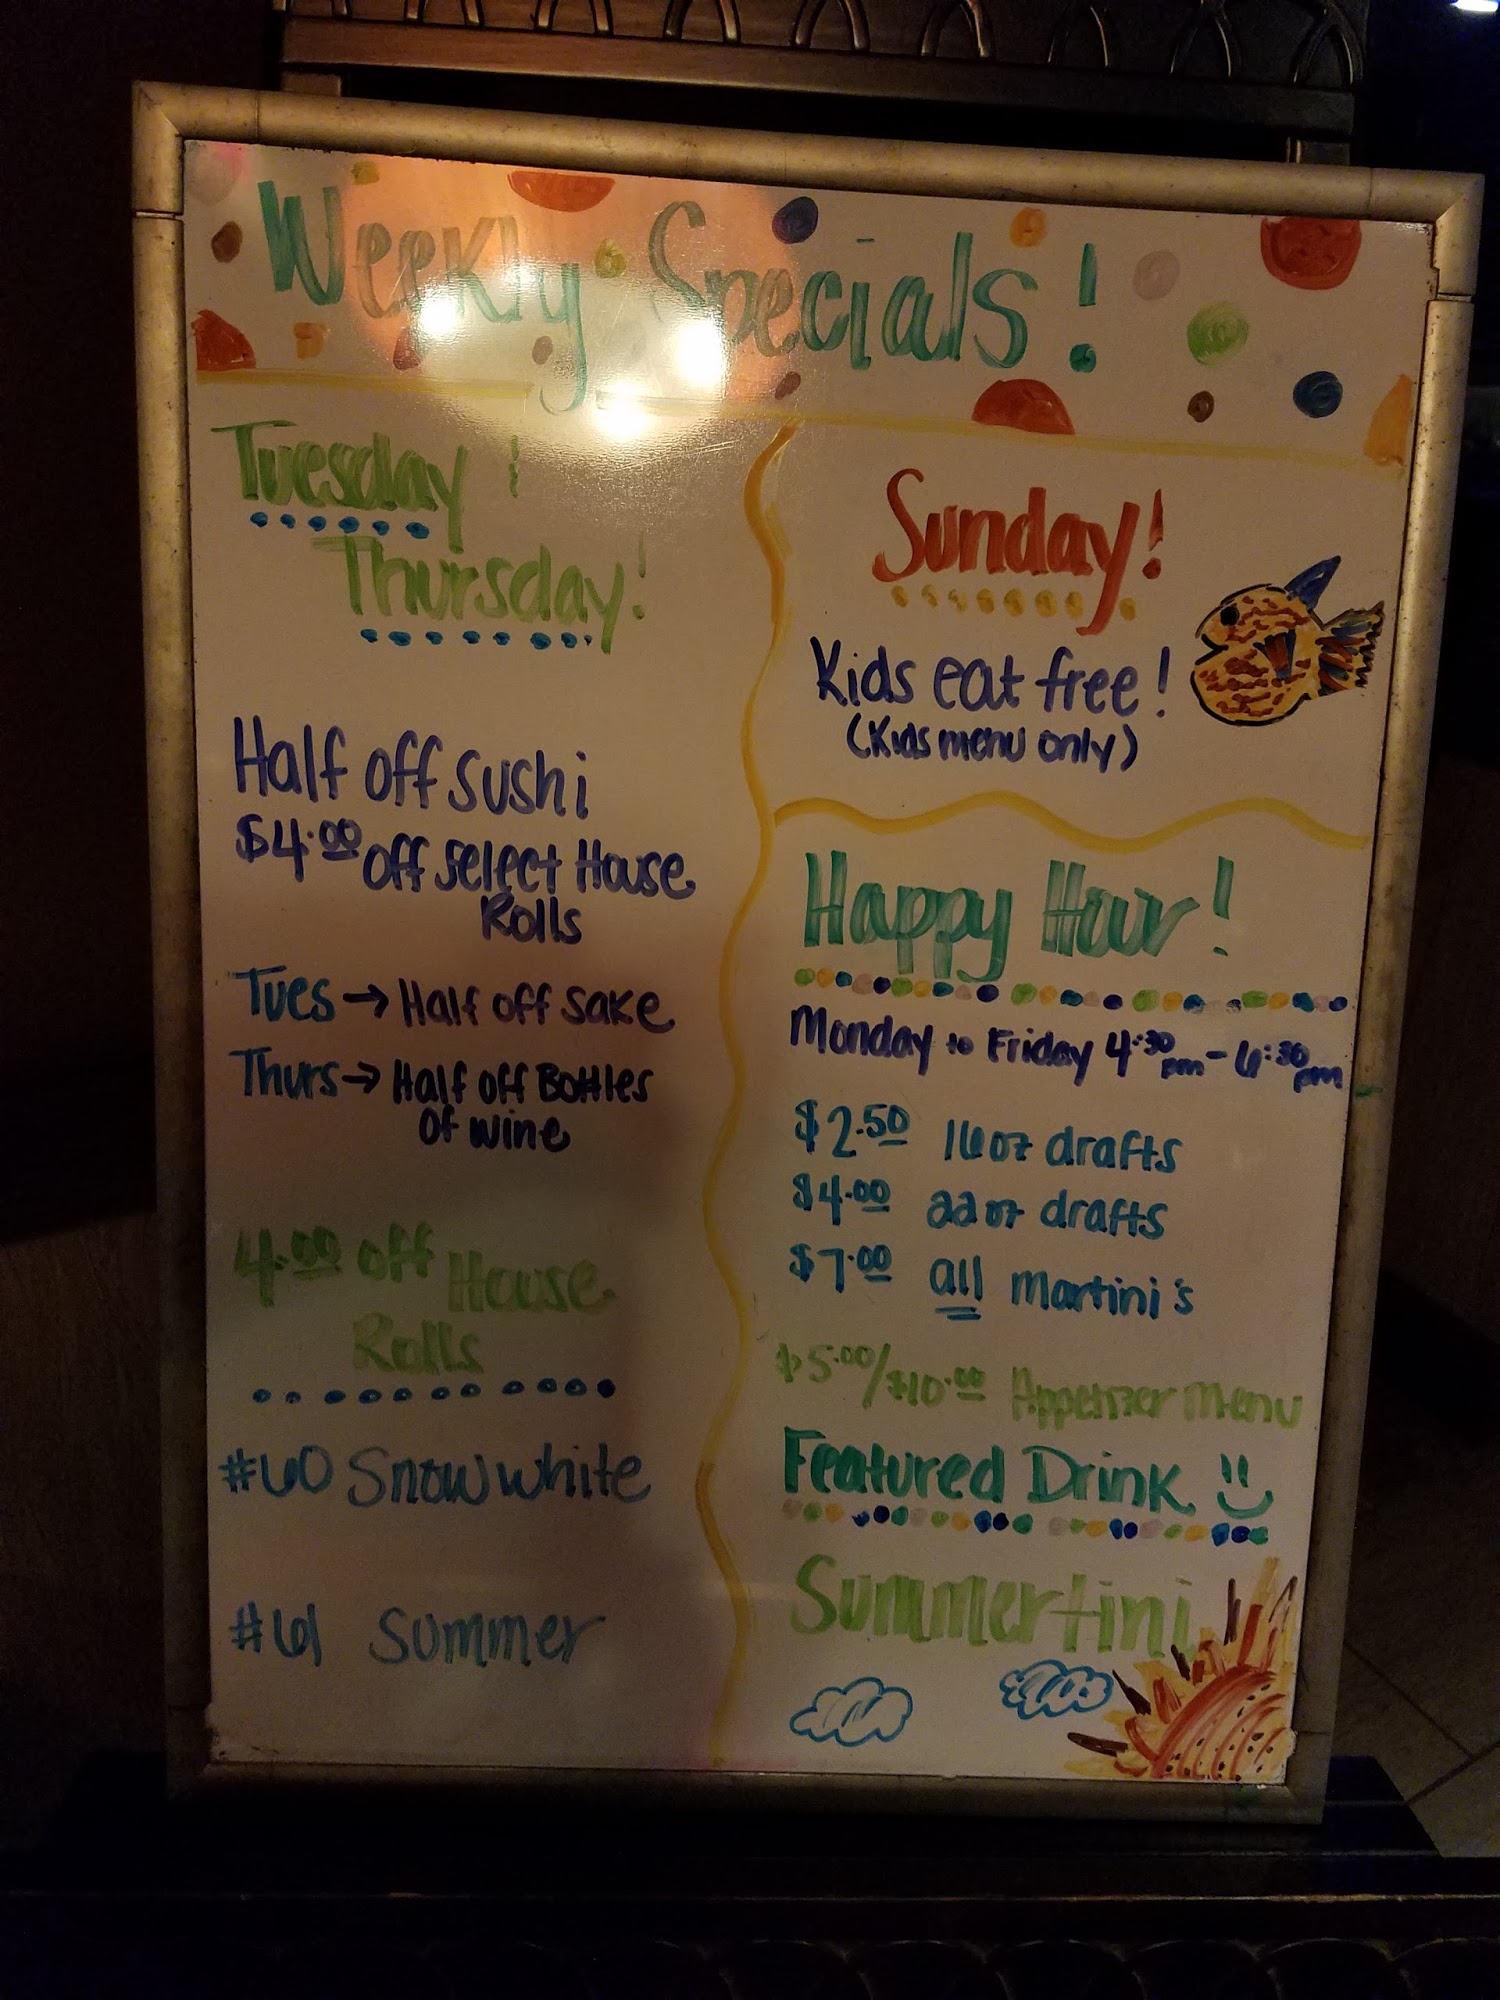 Weekly Specials!
Tuesday!
Thursday!
Half off sushi
$4.00 off select House
Rolls
Tues → Half off sake
Thurs → Half off Bottles
of wine
4.00 off House
Rolls
#60 Snow white
#61 summer
Sunday!
Kids eat free!
(Kids menu only)
Happy Hour!
Monday to Friday 4:30pm - 6:30pm
$2.50 16oz drafts
$4.00 22oz drafts
$7.00 all martini's
$5.00/$10.00 Appetizer menu
Featured Drink
Summertini